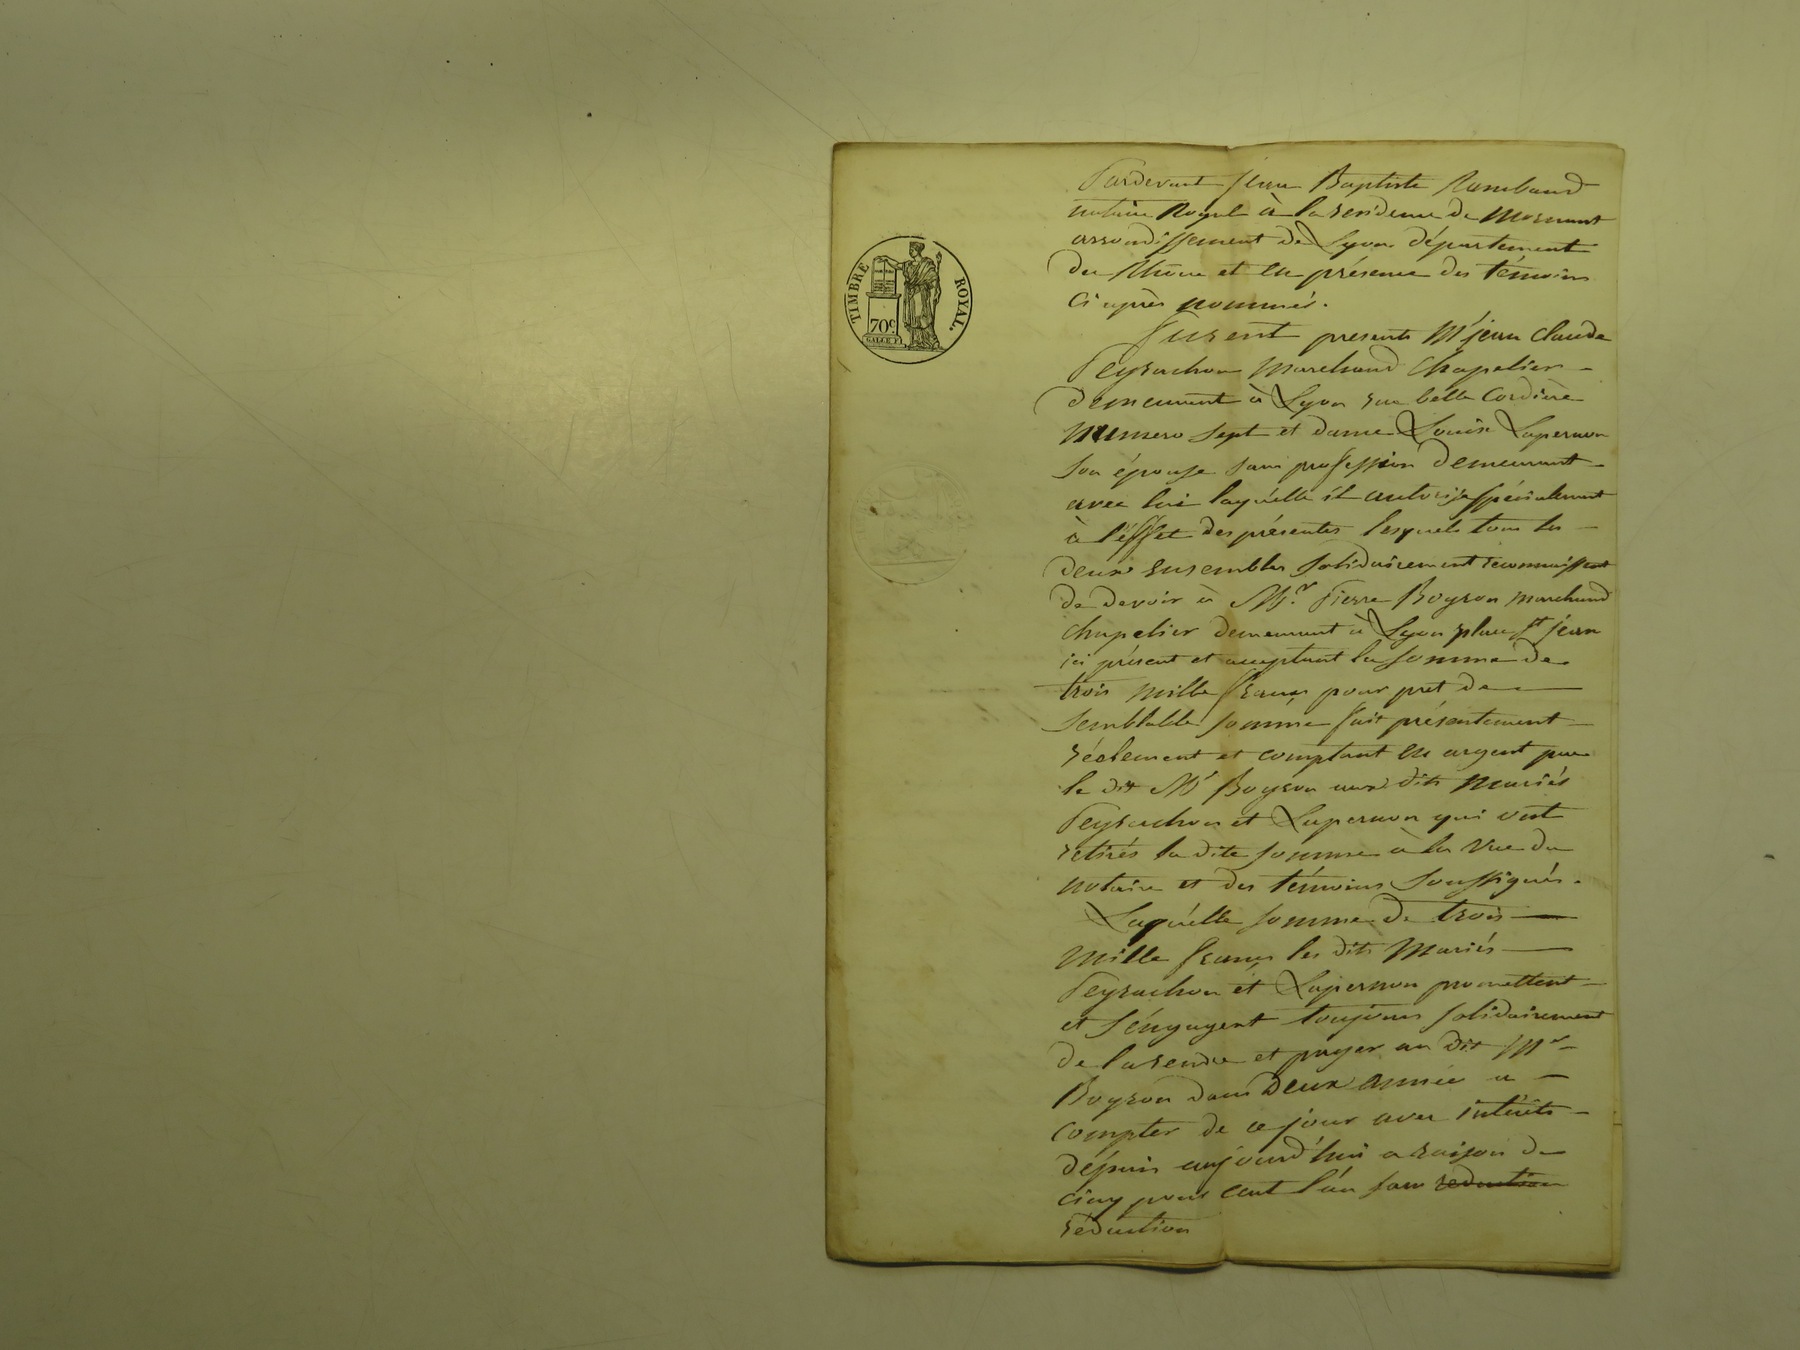 TIMBRE ROYAL.
70c
GALLE F.
Pardevant Jean Baptiste Rambaud
notaire Royal à la residence de Mornant
arrondissement de Lyon département
du Rhône et en présence des témoins
ci après nommés.
Furent presents Mr jean Claude
Peyrachon Marchand Chapelier
demeurant à Lyon rue belle Cordière
numero sept et dame Louise Lapernon
son épouse sans profession demeurant
avec lui laquélle il autorise spécialement
à l'éffet des présentes lesquels tous les
deux ensembles solidairement reconnaissent
de devoir à Mr. Pierre Boyron marchand
chapelier demeurant à Lyon place St jean
ici présent et acceptant la somme de
trois mille francs pour pret de
semblable somme fait présentement
réelement et comptant en argent par
le dit Mr Boyron aux dits mariés
Peyrachon et Lapernon qui ont
retirés la dite somme à la vue du
notaire et des témoins soussignés.
Laquélle somme de trois
mille francs les dits Mariés
Peyrachon et Lapernon promettent
et s'éngagent toujours solidairement
de la rendre et payer au dit Mr
Boyron dans deux année a
compter de ce jour avec intérêts
dépuis aujourd'hui a raison de
cinq pour cent l'an sans reduction
réduction